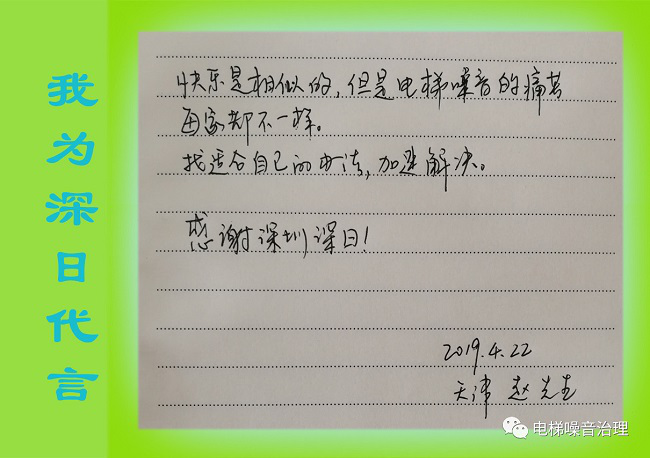 我为深日代言
快乐是相似的，但是电梯噪音的痛苦
每家都不一样。
找适合自己的办法，加速解决。
感谢深圳深日！
2019.4.22
天津 赵先生
电梯噪音治理